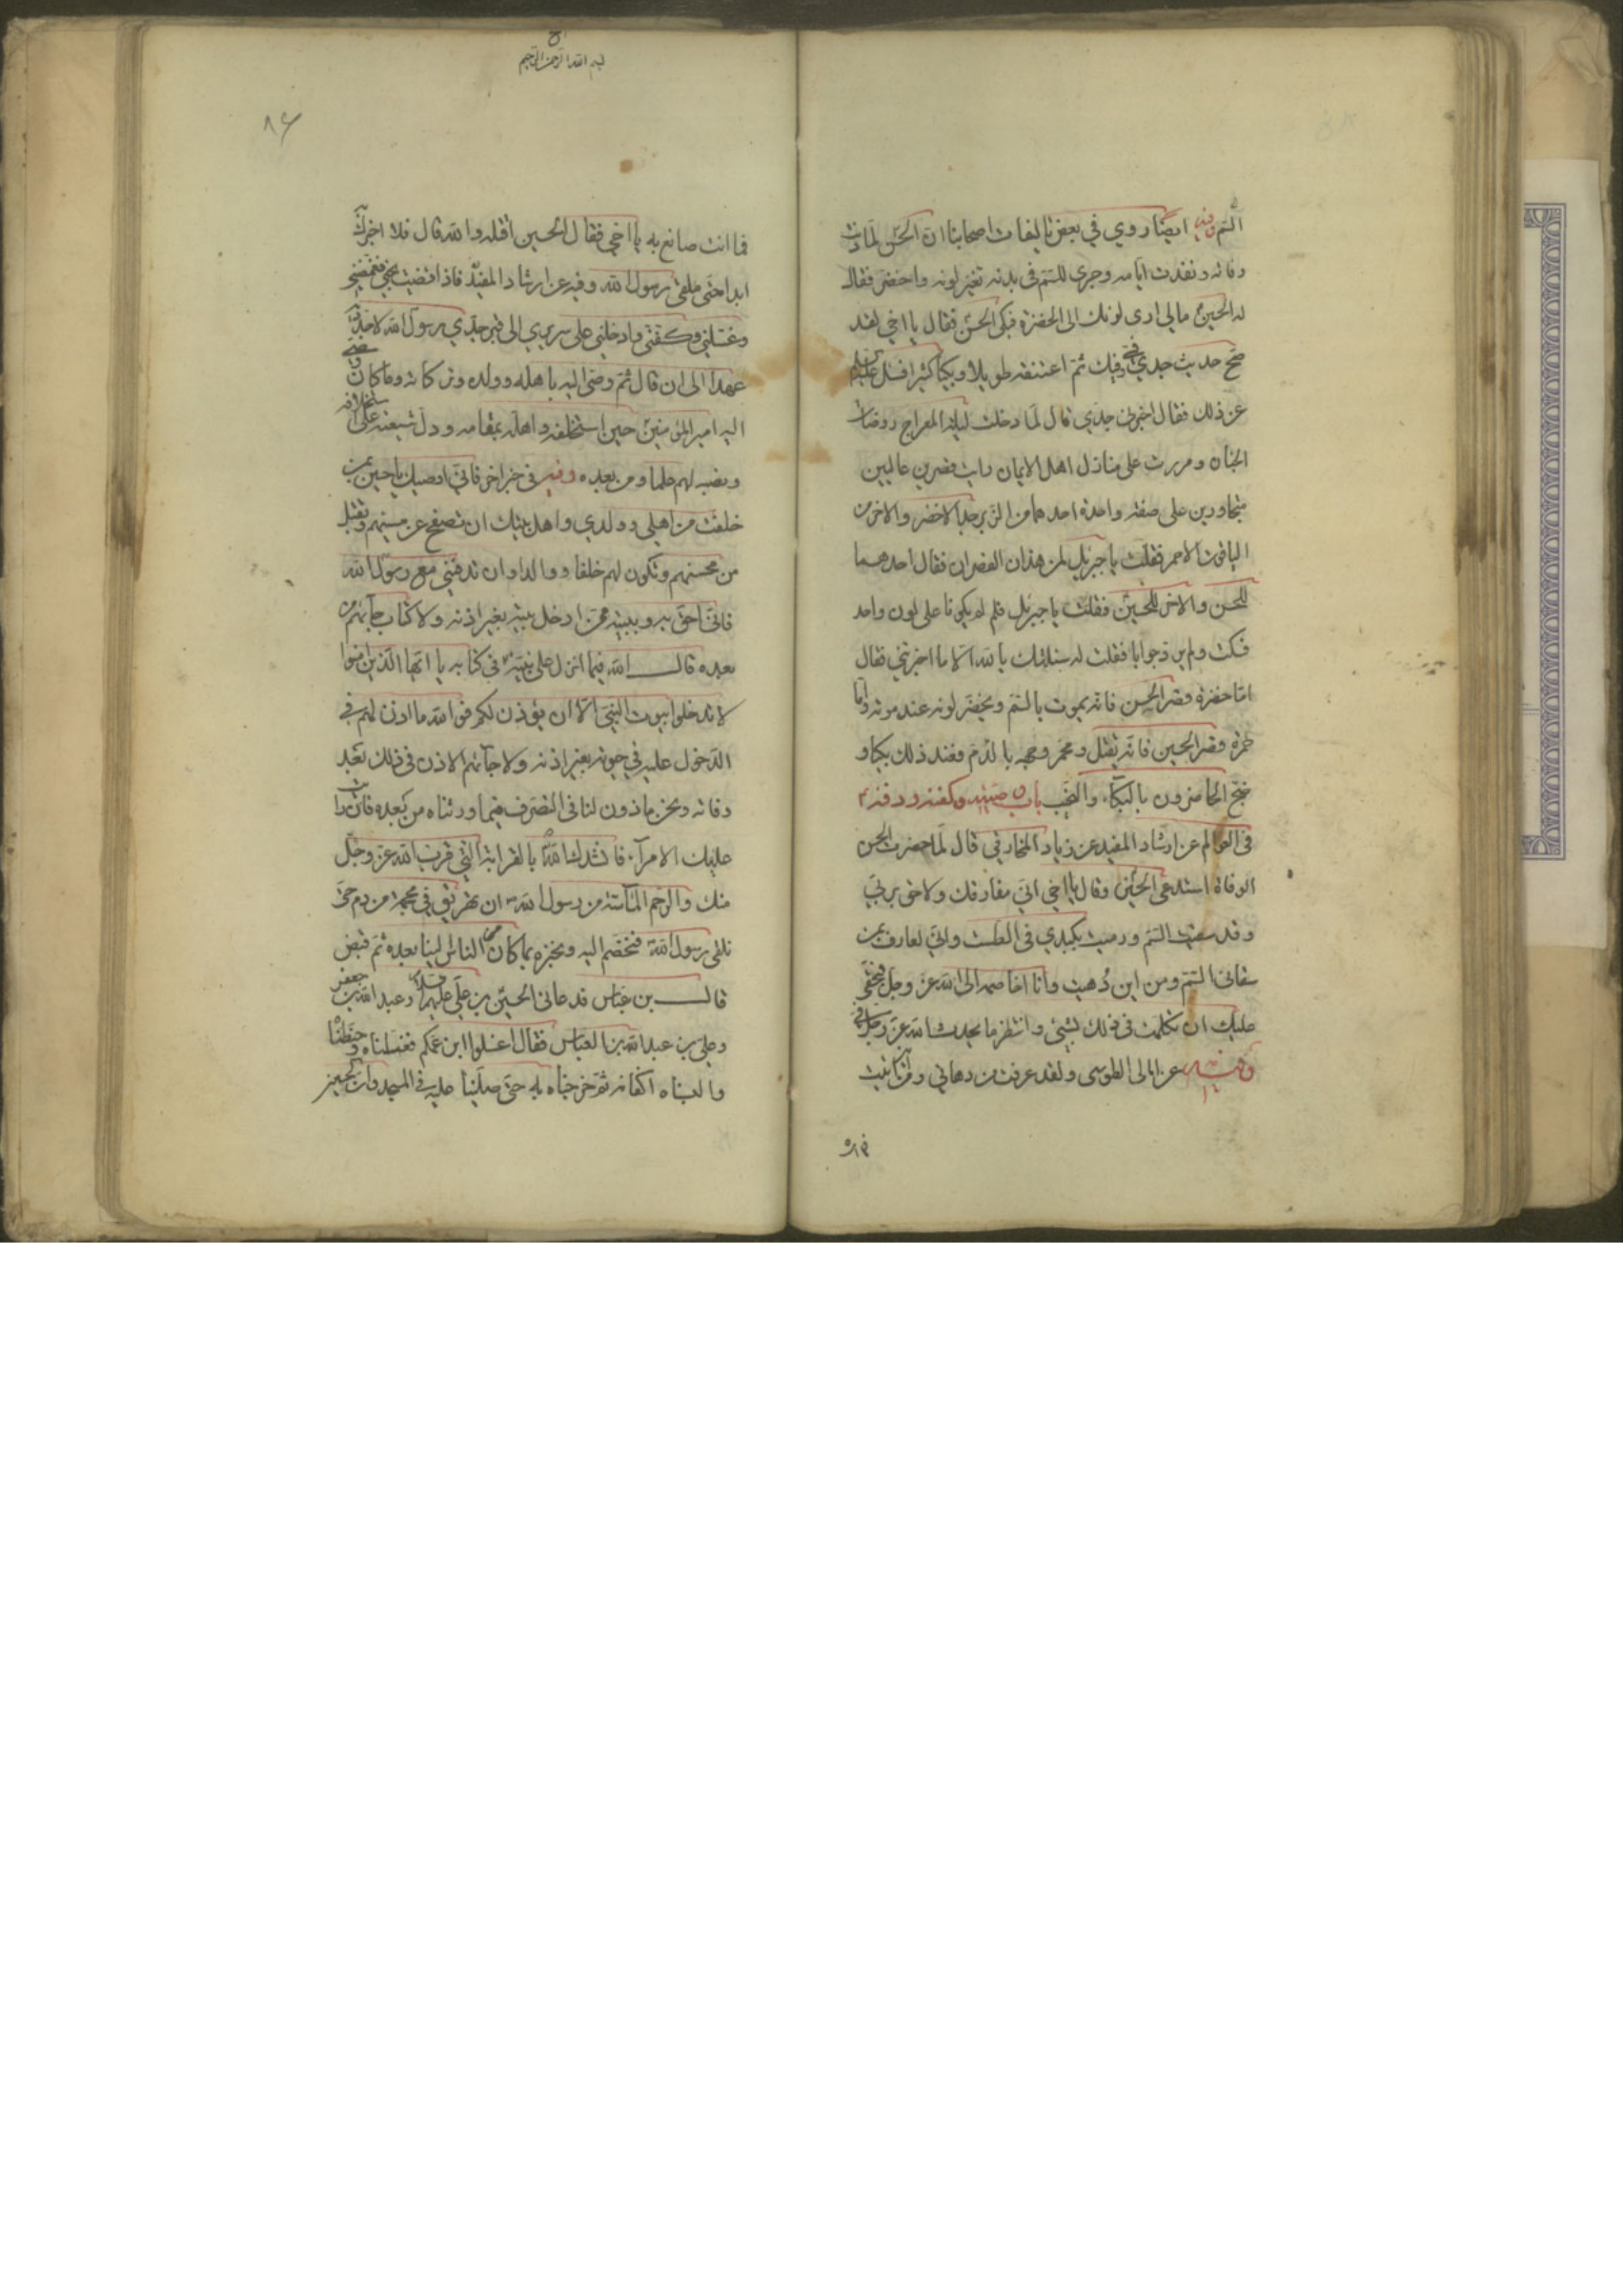 السّم وفيه ايضا روي في بعض تاليفات اصحابنا ان الحسن لما دنت
وفاته ونفدت ايامه وجرى السّم في بدنه تغير لونه واخضر فقال
له الحسين مالي ارى لونك الى الخضرة فبكى الحسن فقال يا اخي لقد
صح حديث جدي فيّ وفيك ثم اعتنقه طويلا وبكيا كثيرا فسئل
عن ذلك فقال اخبرني جدي قال لما دخلت ليلة المعراج روضات
الجنان ومررت على منازل اهل الايمان رايت قصرين عاليين
متجاورين على صفة واحدة احدهما من الزبرجد الاخضر والاخر من
الياقوت الاحمر فقلت يا جبرئيل لمن هذان القصران فقال احدهما
للحسن والاخر للحسين فقلت يا جبرئيل فلم لم يكونا على لون واحد
فسكت ولم يرد جوابا فقلت له سئلتك بالله الا ما اخبرتني فقال
اما خضرة قصر الحسن فانه يموت بالسّم ويخضر لونه عند موته واما
حمرة قصر الحسين فانه يقتل ويحمر وجهه بالدم فعند ذلك بكيا و
ضج الحاضرون بالبكاء والنحيب باب وصيته وكفنه ودفنه
في العوالم عن ارشاد المفيد عن زياد المخارقي قال لما حضرت الحسن
الوفاة استدعى الحسين وقال يا اخي اني مفارقك ولاحق بربي
وقد سقيت السّم ورميت بكبدي في الطست واني لعارف بمن
سقاني السّم ومن اين دهيت وانا اخاصمه الى الله عز وجل فبحقي
عليك ان تكلمت في ذلك بشيئ وانتظر ما يحدث الله عز وجل فيّ
وفيه عن امالى الطوسى ولقد عرفت من دهاني ومن اين اتيت
فما انت
بسم الله الرحمن الرحيم
٨٦
فما انت صانع به يا اخي فقال الحسين اقتله والله قال فلا اخبرك
ابدا حتى نلقى رسول الله وفيه عن ارشاد المفيد فاذا قضيت نحبي فغمضني
وغسلني وكفني وادخلني على سريري الى قبر جدي رسول الله لاجدد به
عهدا الى ان قال ثم وصى اليه باهله وولده وتركاته وما كان وصى
اليه امير المؤمنين حين استخلفه واهله بمقامه ودل شيعته على استخلافه
ونصبه لهم علما ومن بعده وفيه في خبر اخر فاني اوصيك يا حسين بمن
خلفت من اهلي وولدي واهل بيتك ان تصفح عن مسيئهم وتقبل
من محسنهم وتكون لهم خلفا ووالدا وان تدفنني مع رسول الله
فاني احق به وببيته ممن ادخل بيته بغير اذنه ولا كتاب جائهم من
بعده قال الله فيما انزل على نبيه في كتابه يا ايها الذين امنوا
لا تدخلوا بيوت النبي الا ان يؤذن لكم فو الله ما اذن لهم في
الدخول عليه في حيوته بغير اذنه ولا جائهم الاذن في ذلك بعد
وفاته ونحن ماذون لنا في التصرف فيما ورثناه من بعده فان
عليك الامراة فانشدك الله بالقرابة التي قرب الله عز وجل
منك والرحم الماسة من رسول الله ان تهريق في محجمة من دم حتى
نلقى رسول الله فنختصم اليه ونخبره بما كان من الناس الينا بعده ثم قبض
قال بن عباس فدعاني الحسين بن علي وعبد الله بن جعفر
وعلي بن عبد الله بن العباس فقال اغسلوا ابن عمكم فغسلناه وحنطناه
والبسناه اكفانه ثم خرجنا به حتى صلينا عليه في المسجد وان الحسين